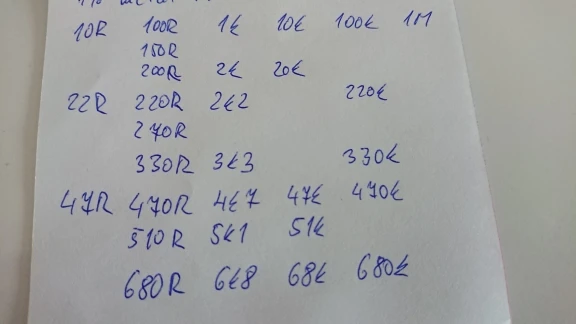 10R 100R 1k 10k 100k 1M
150R
200R 2k 20k
22R 220R 2k2 220k
270R
330R 3k3 330k
47R 470R 4k7 47k 470k
510R 5k1 51k
680R 6k8 68k 680k